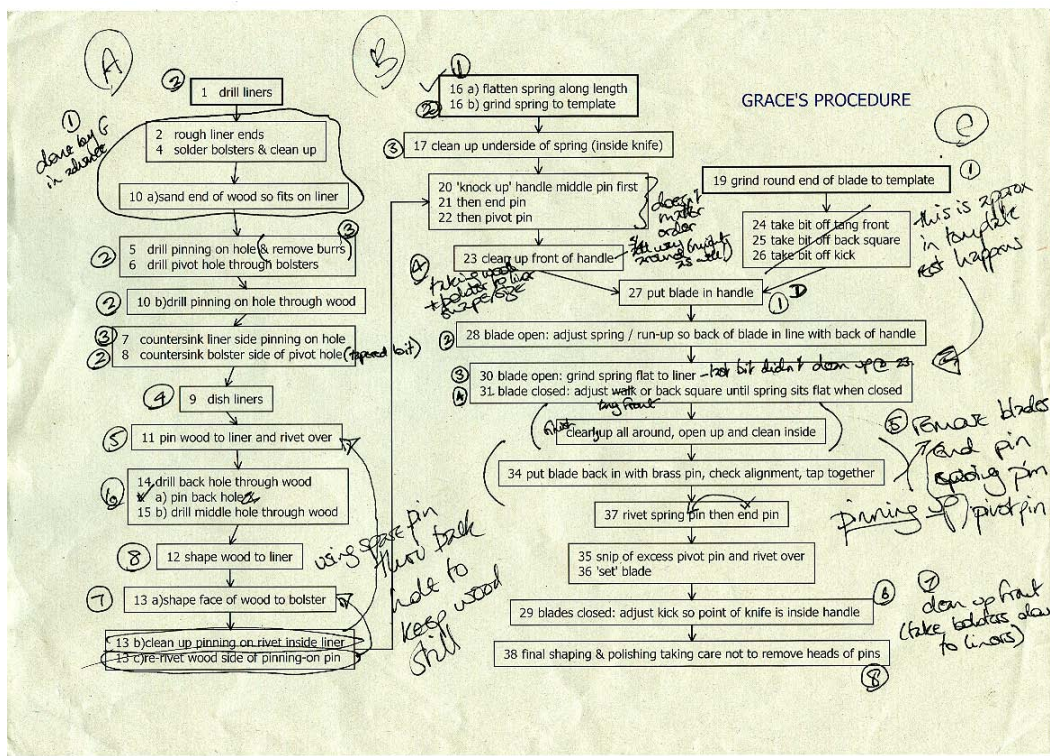 GRACE'S PROCEDURE
A
②
1 drill liners
①
done by G
in advance
2 rough liner ends
4 solder bolsters & clean up
10 a)sand end of wood so fits on liner
③
②
5 drill pinning on hole (& remove burrs)
6 drill pivot hole through bolsters
②
10 b)drill pinning on hole through wood
③
7 countersink liner side pinning on hole
②
8 countersink bolster side of pivot hole (tapered bit)
④
9 dish liners
⑤
11 pin wood to liner and rivet over
⑥
14 drill back hole through wood
a) pin back hole
15 b) drill middle hole through wood
using spare pin
thro back
hole to
keep wood
still
⑧
12 shape wood to liner
⑦
13 a)shape face of wood to bolster
13 b)clean up pinning on rivet inside liner
13 c)re-rivet wood side of pinning-on pin
B
①
16 a) flatten spring along length
②
16 b) grind spring to template
③
17 clean up underside of spring (inside knife)
20 'knock up' handle middle pin first
21 then end pin
22 then pivot pin
doesn't
matter
order
④
23 clean up front of handle
taking wood
+ bolster to liner
C
①
19 grind round end of blade to template
24 take bit off tang front
25 take bit off back square
26 take bit off kick
this is approx
in template
rest happens
27 put blade in handle
① D
②
28 blade open: adjust spring / run-up so back of blade in line with back of handle
③
30 blade open: grind spring flat to liner - last bit didn't clean up @ 23
④
31 blade closed: adjust walk or back square until spring sits flat when closed
tang front
clean up all around, open up and clean inside
34 put blade back in with brass pin, check alignment, tap together
⑤ remove blades
end pin
spring pin
pivot pin
pinning up
37 rivet spring pin then end pin
35 snip of excess pivot pin and rivet over
36 'set' blade
⑥
29 blades closed: adjust kick so point of knife is inside handle
⑦
clean up front
(take bolsters down
to liners)
38 final shaping & polishing taking care not to remove heads of pins
⑧